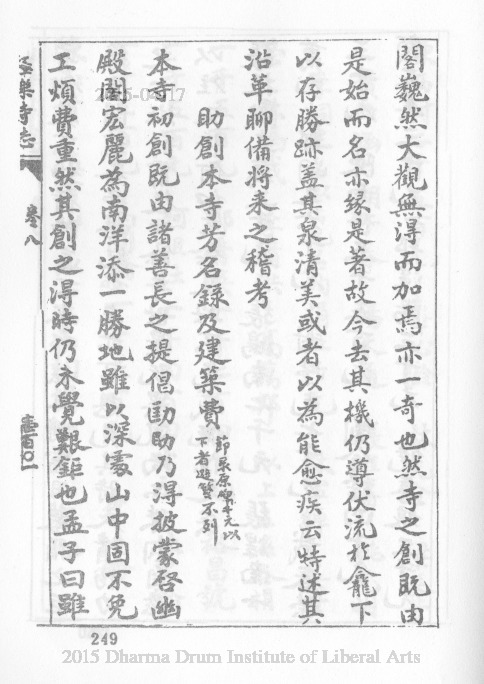 閣巍然大觀無淂而加焉亦一奇也然寺之創既由
是始而名亦緣是著故今去其機仍導伏流於龕下
以存勝跡蓋其泉清美或者以為能愈疾云特述其
沿革聊備将来之稽考
助創本寺芳名錄及建築費
節泉原碑千元以
下者避贊不列
本寺初創既由諸善長之提倡勷助乃淂披蒙啓幽
殿閣宏麗為南洋添一勝地雖以深處山中固不免
工煩費重然其創之淂時仍未覺艱鉅也孟子曰雖
極樂寺志
卷八
壹百〇一
249
2015 Dharma Drum Institute of Liberal Arts